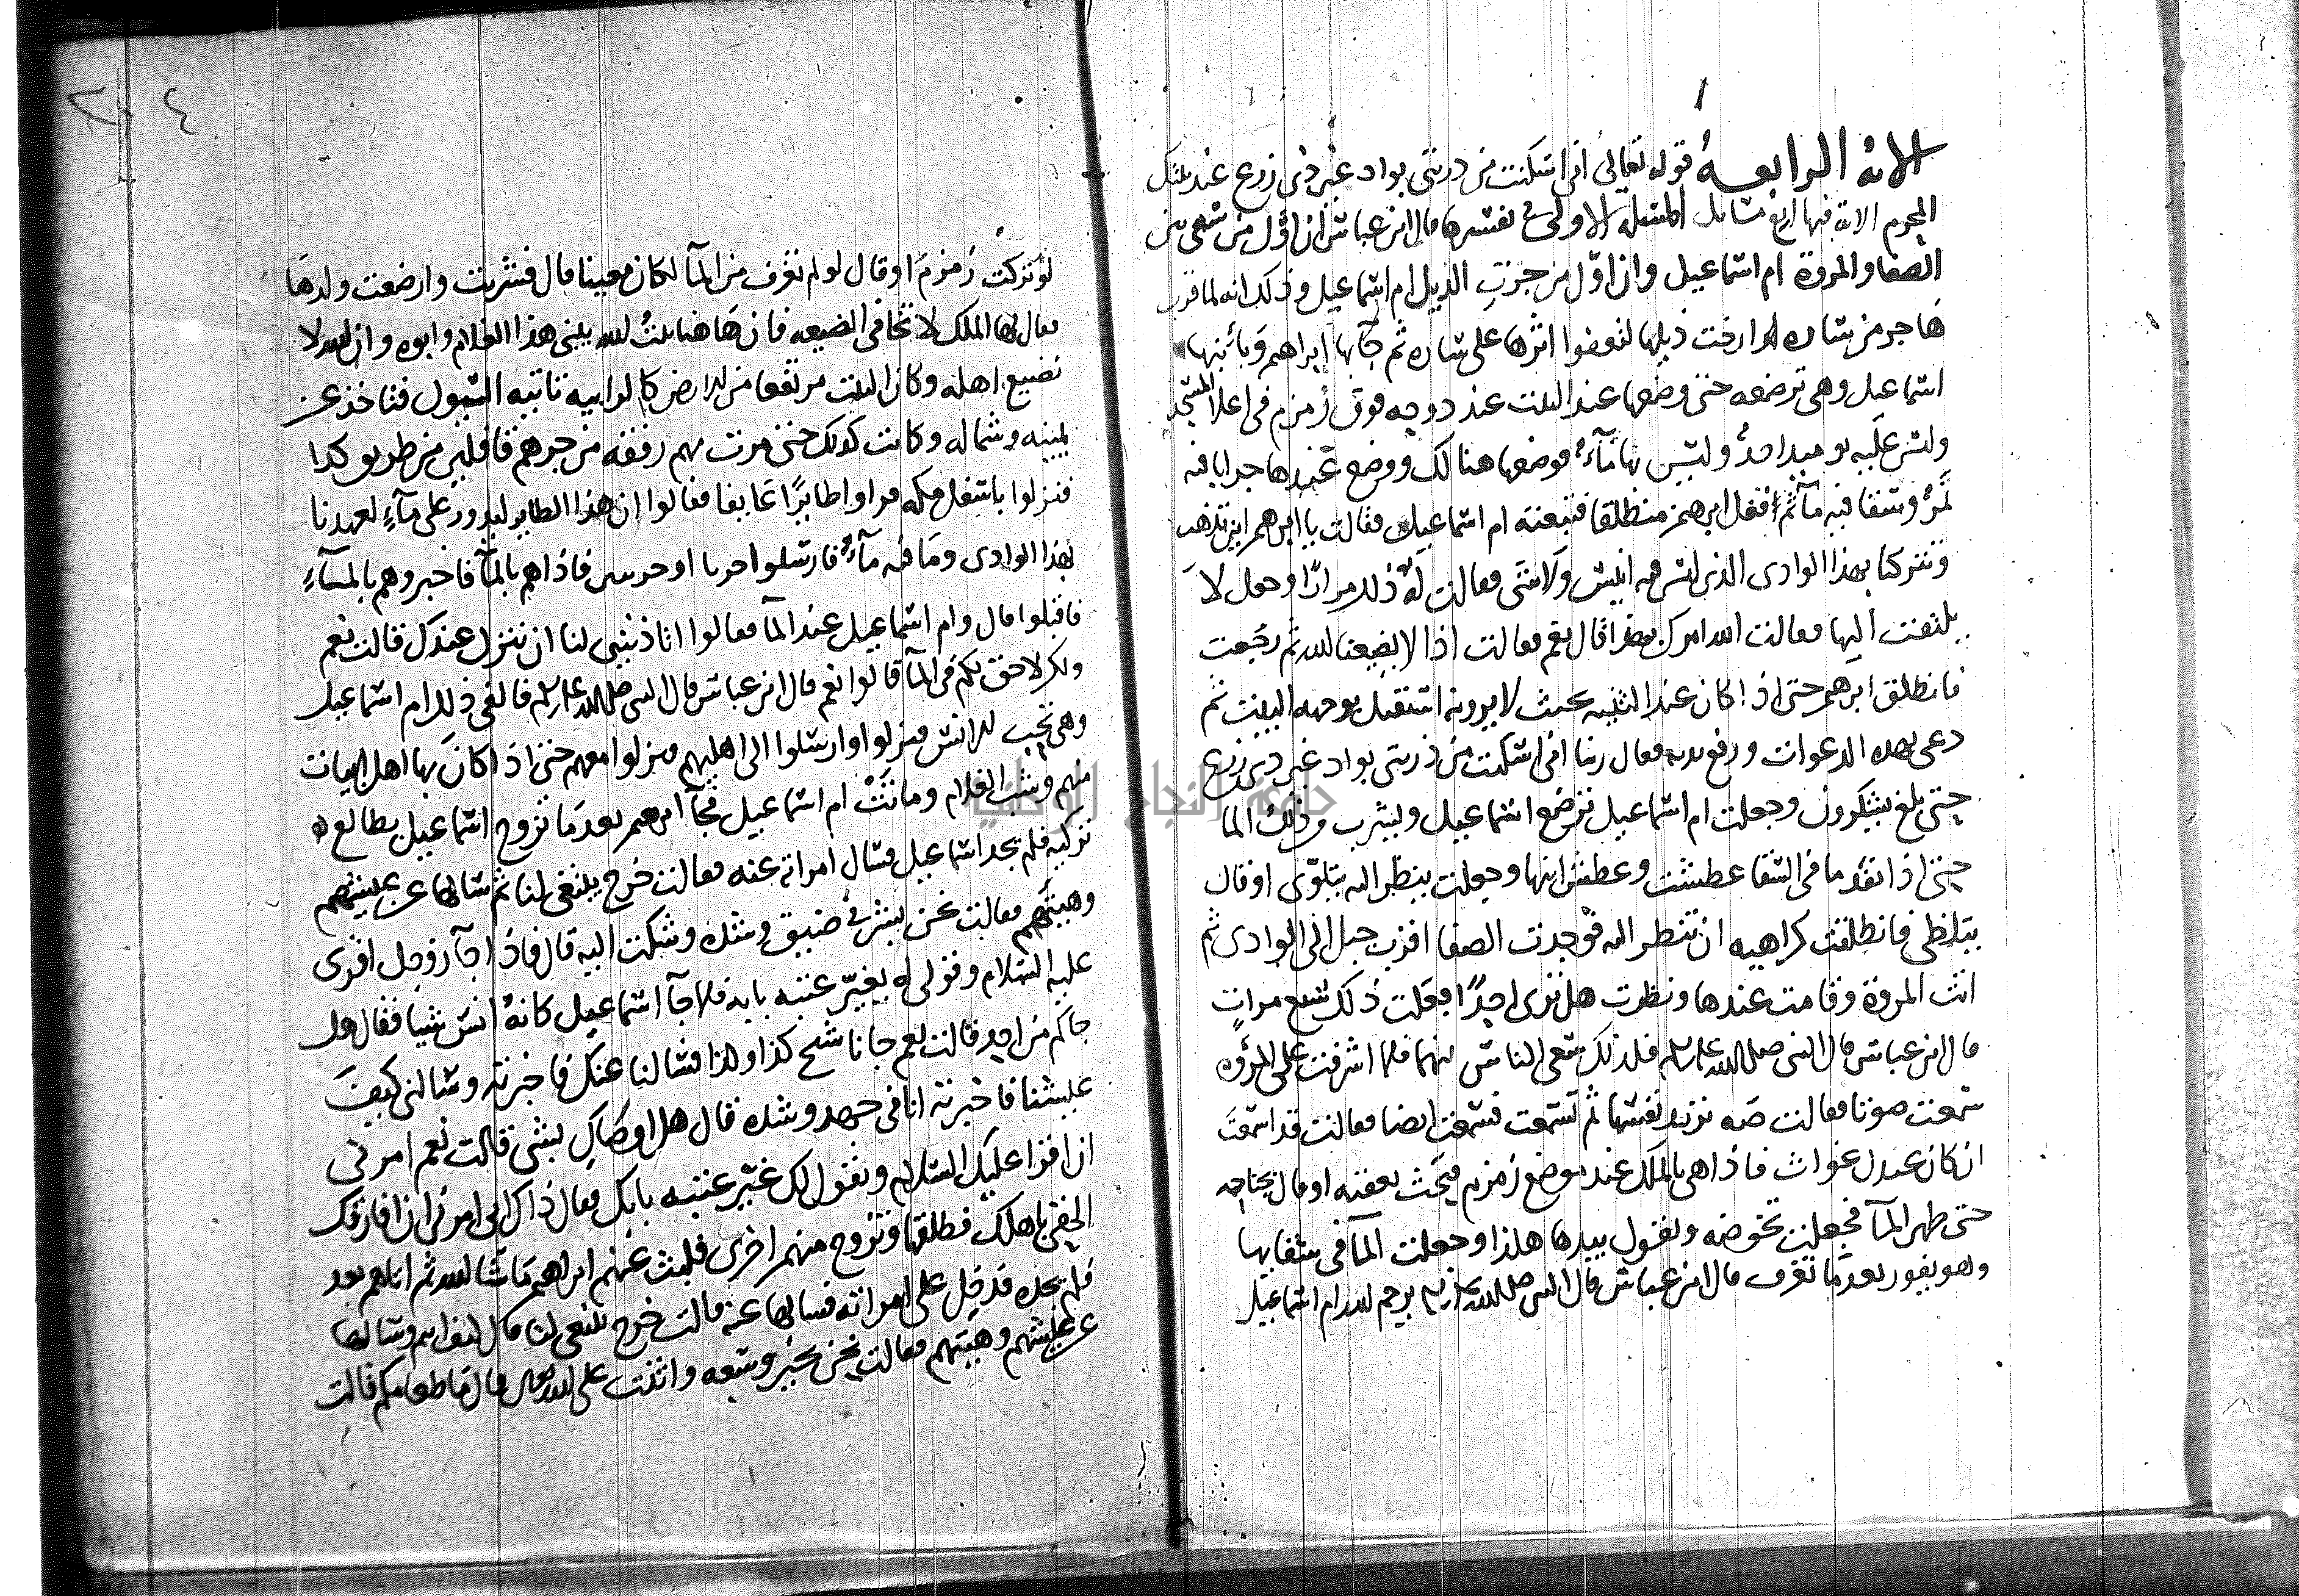 الاية الرابعة قوله تعالى اني اسكنت من ذريتي بواد غير ذي زرع عند بيتك
المحرم الاية فيها اربع مسايل المسئلة الاولى في تفسيرها قال ابن عباس ان اول من سعى بين
الصفا والمروة ام اسماعيل وان اول من جرت الذيل ام اسماعيل وذلك انه لما فرت
هاجر من ساره ارخت ذيلها لتعفوا اثرها على ساره ثم جآ بها ابراهيم وبابنها
اسماعيل وهي ترضعه حتى وضعها عند البيت عند دوحه فوق زمزم في اعلا المسجد
وليس عليه يوميذ احدٌ وليس بها مآءٌ فوضعها هنالك ووضع عندها جرابا فيه
تمرٌ وسقا فيه مآء ثم قفل ابرهيم منطلقا فتبعته ام اسماعيل فقالت يا ابرهيم اين تذهب
وتتركنا بهذا الوادى الذي ليس فيه انيس ولا شى فعالت له ذلك مرارًا وجعل لا
يلتفت اليها فعالت الله امرك بهذا قال نعم فعالت اذا لا يضيعنا الله ثم رجعت
فانطلق ابرهيم حتى اذا كان عند الثنيه حيث لا يرونه استقبل بوجهه البيت ثم
دعى بهذه الدعوات ورفع يديه فعال ربنا اني اسكنت من ذريتي بواد غير ذي زرع
حتى بلغ يشكرون وجعلت ام اسماعيل ترضع اسماعيل وتشرب من ذلك الما
حتى اذا نفد ما في السقا عطشت وعطش ابنها وجعلت ينظر اليه يتلوّى او قال
يتلظى فانطلقت كراهيه ان تنظر اليه فوجدت الصفا اقرب جبل الى الوادى ثم
اتت المروة وقامت عندها ونظرت هل ترى احدًا فعلت ذلك سبع مراتٍ
قال ابن عباس قال النبي صلى الله عليه وسلم فلذلك سعى الناس بينهما فلما اشرفت على المروه
سمعت صوتا فعالت صه تريد نفسها ثم تسمعت فسمعت ايضا فعالت قد اسمعت
ان كان عندك غواث فاذا هي بالملك عند موضع زمزم فبحث بعقبه او قال بجناحه
حتى ظهر المآ فجعلت تحوضه وتقول بيدها هكذا وجعلت المآ في سقايها
وهو يفور بعد ما تغرف قال ابن عباس قال النبي صلى الله عليه وسلم يرحم الله ام اسماعيل
لو تركت زمزم او قال لو لم تغرف من المآ لكان معينا قال فشربت وارضعت ولدها
فعال لها الملك لا تخافى الضيعه فان هاهنا بيت الله يبنى هذا الغلام وابوه وان الله لا
يضيع اهله وكان البيت مرتفعا من الارض كالرابيه تاتيه السيول فتاخذ عن
يمينه وشماله وكانت كذلك حتى مرت بهم رفقه من جرهم قافلين من طريق كدا
فنزلوا باسفل مكه فراوا طايرًا عايفا فقالوا ان هذا الطاير ليدور على مآءٍ لعهدنا
بهذا الوادى وما فيه مآءٌ فارسلوا جريا او جريين فاذا هم بالمآ فاخبروهم بالمآءِ
فاقبلوا قال وام اسماعيل عند المآ فعالوا اتاذنيني لنا ان ننزل عندك قالت نعم
ولكن لا حق لكم في المآ قالوا نعم قال ابن عباس قال النبي صلى الله عليه وسلم فالفى ذلك ام اسماعيل
وهي تحب الانس فنزلوا وارسلوا الى اهليهم فنزلوا معهم حتى اذا كان بها اهل ابيات
منهم وشب الغلام وماتت ام اسماعيل فجآ ابرهيم بعد ما تزوج اسماعيل يطالع
تركته فلم يجد اسماعيل فسال امراته عنه فعالت خرج يبتغى لنا ثم سالها عن عيشهم
وهيئتهم فعالت نحن بشر في ضيق وشده وشكت اليه قال فاذا جآ زوجك اقرى
عليه السلام وقولى له يغيّر عتبه بابه فلما جآ اسماعيل كانهُ انس شيا فقال هل
جاكم من احد قالت نعم جانا شيخ كذا وكذا فسالنا عنك فاخبرته وسالني كيف
عيشنا فاخبرته انا في جهد وشده قال هل اوصاك بشى قالت نعم امرنى
ان اقرا عليك السلام ويقول لك غيّر عتبه بابك فعال ذاك ابى امرنى ان افارقك
الحقى باهلك فطلقها وتزوج منهم اخرى فلبث عنهم ابراهيم ما شا الله ثم اتاهم بعد
فلم يجده فدخل على امراته فسالها عنه قالت خرج يبتغى لنا قال كيف انتم وسالها
عن عيشهم وهيتهم فعالت نحن بخير وسعه واثنت على الله تعالى قال ما طعامكم قالت